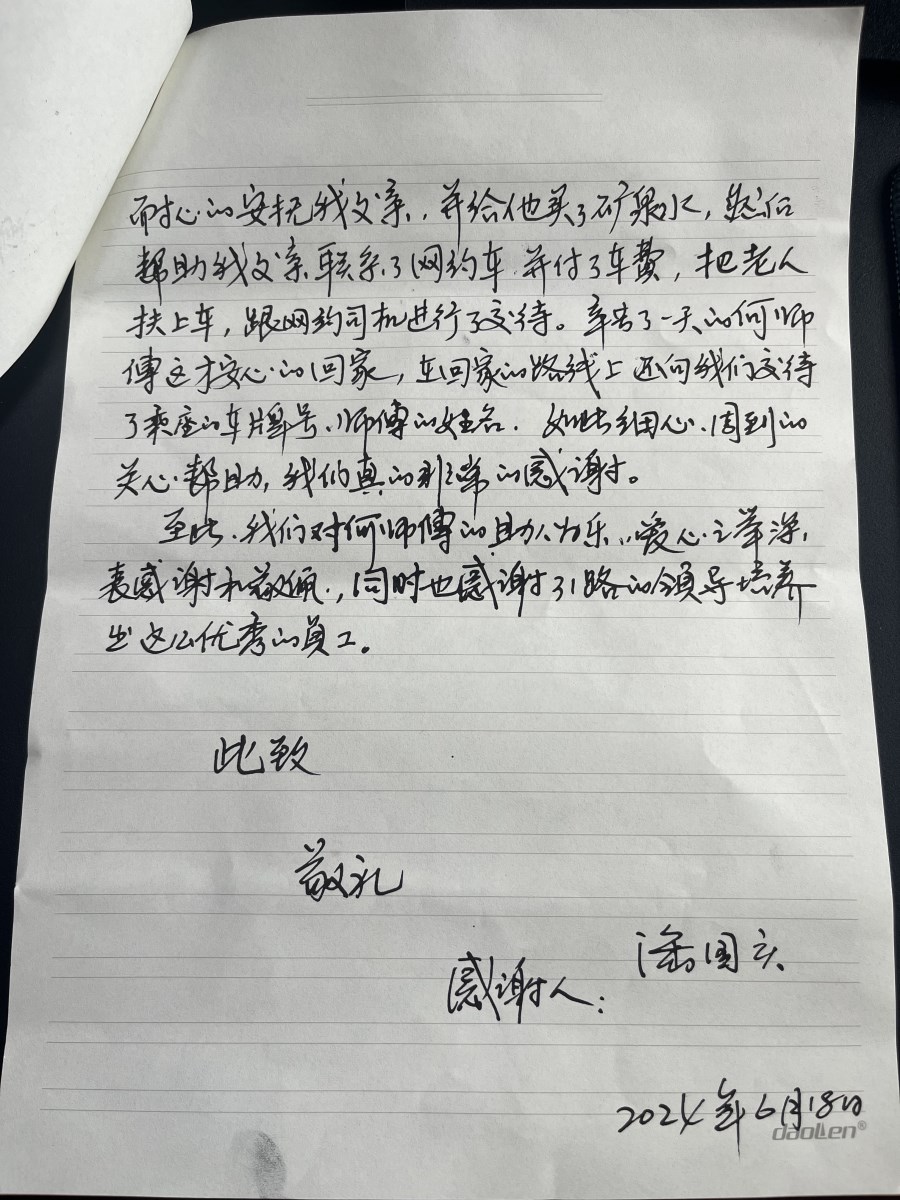 耐心的安抚我父亲，并给他买了矿泉水，然后
帮助我父亲联系了网约车.并付了车费，把老人
扶上车，跟网约司机进行了交待。辛苦了一天的何师
傅这才安心的回家，在回家的路线上还向我们交待
了乘座的车牌号、师傅的姓名.如此细心、周到的
关心、帮助，我们真的非常的感谢。
至此、我们对何师傅的助人为乐、爱心之举深
表感谢和敬佩.，同时也感谢31路的领导培养
出这么优秀的员工。
此致
敬礼
感谢人：潘国庆
2024年6月18日
daoLen®